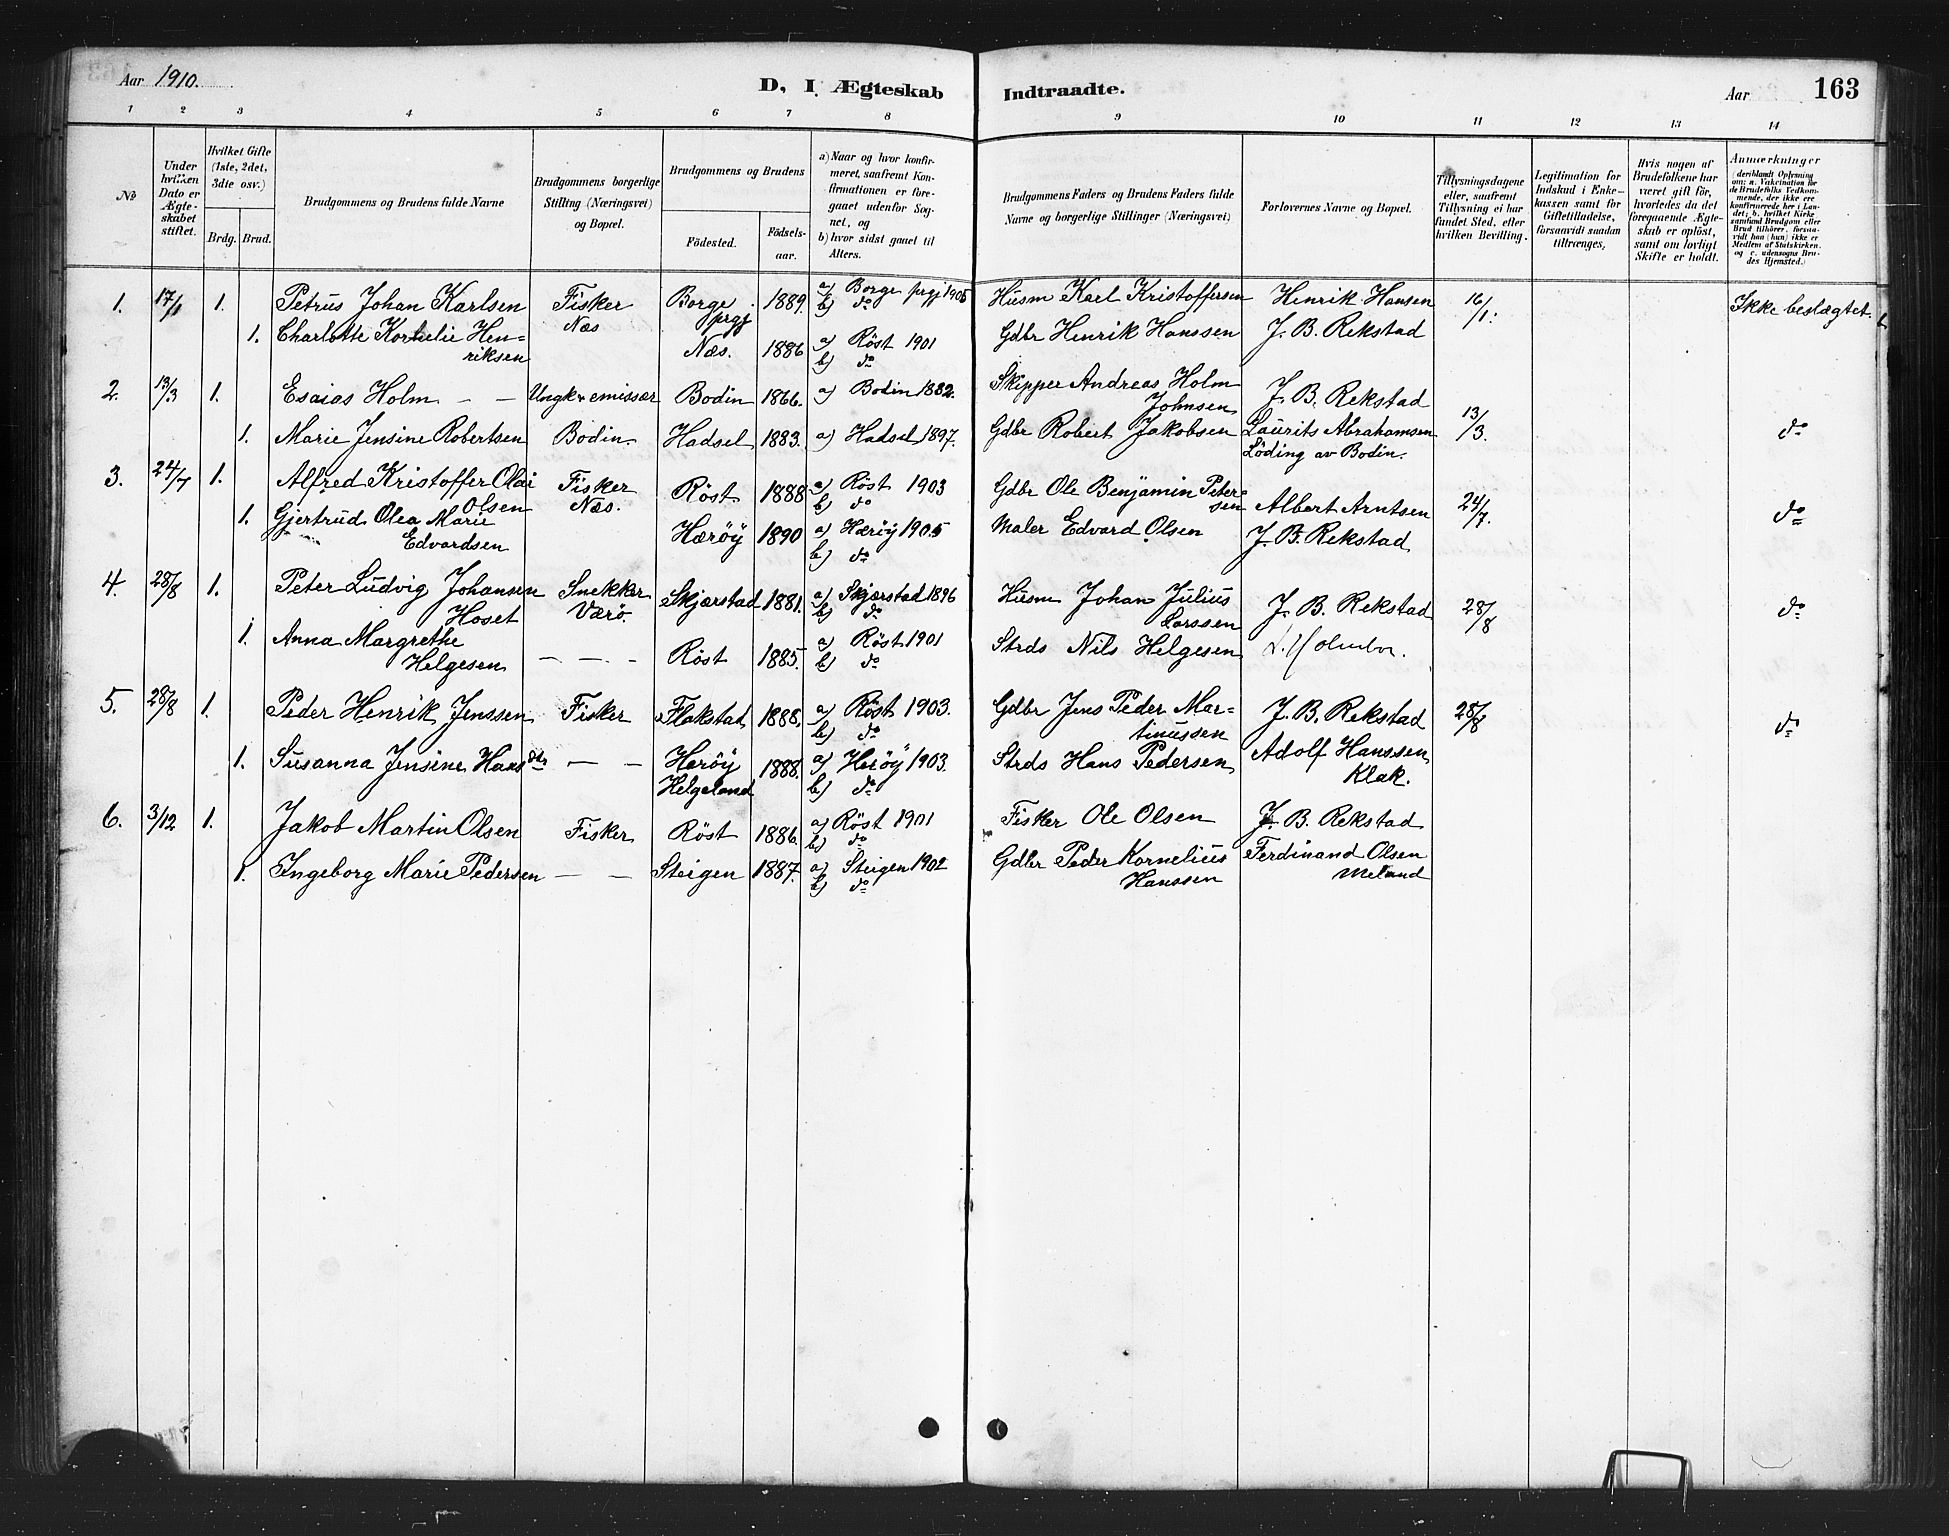 Aar 1910.
D, I Ægteskab
Indtraadte.
Aar
163
1 2 3 4 5 6 7 8
9 10 11 12 13 14
No
Under hvilken Dato er Ægteskabet stiftet.
Hvilket Gifte (1ste, 2det, 3die osv.)
Brdg. Brud.
Brudgommens og Brudens fulde Navne
Brudgommens borgerlige Stilling (Næringsvei) og Bopæl.
Brudgommens og Brudens
Födested.
Födselsaar.
a) Naar og hvor konfirmeret, saafremt Konfirmationen er foregaaet udenfor Sognet, og
b) hvor sidst gaaet til Alters.
Brudgommens Faders og Brudens Faders fulde Navne og borgerlige Stillinger (Næringsvei)
Forlovernes Navne og Bopæl.
Tillysningsdagene eller, saafremt Tillysning ei har fundet Sted, efter hvilken Bevilling.
Legitimation for Indskud i Enkekassen samt for Giftetilladelse, forsaavidt saadan tiltrænges,
Hvis nogen af Brudefolkene har været gift för, hvorledes da det foregaaende Ægteskab er oplöst, samt om lovligt Skifte er holdt.
Anmærkninger
(deriblandt Oplysning om: a. Vakcination for de Brudefolks Vedkommende, der ikke ere konfirmerede her i Landet; b. hvilket Kirkesamfund Brudgom eller Brud tilhörer, forsaavidt han (hun) ikke er Medlem af Statskirken. og c. udensogns Brudes Hjemsted.)
1. 17/1 1. Petrus Johan Karlsen Fisker Borge 1889. a) Borge prgj 1905 Husm Karl Kristoffersen Henrik Hansen 16/1. Ikke beslægtet.
Næs prgj b) do
1. Charlotte Kornelie Hen= Næs. 1886 a) Röst 1901 Gdbr Henrik Hanssen J. B. Rekstad
riksen b) do
2. 13/3 1. Esaias Holm – – Ungk. emissær Bodin 1866. a) Bodin 1882. Skipper Andreas Holm J. B. Rekstad
Johnsen
1. Marie Jensine Robertsen Bodin. Hadsel 1883. a) Hadsel 1897. Gdbr Robert Jakobsen Laurits Abrahamsen 13/3. do
Löding av Bodin.
3. 24/7 1. Alfred Kristoffer Olai Fisker Röst 1888 a) Röst 1903 Gdbr Ole Benjamin Peter=
Olsen Næs. b) do sen Albert Arntsen 24/7. do
1. Gjertrud Olea Marie Hæröy 1890 a) Hæröy 1905 Maler Edvard Olsen J. B. Rekstad
Edvardsen b) do
4. 28/8 1. Peter Ludvig Johansen Snekker Skjærstad 1881. a) Skjærstad 1896 Husm Johan Julius J. B. Rekstad 28/8 do
Hoset Værö. b) do Larssen
1. Anna Margrethe a) Röst 1901 Strds Nils Helgesen
Helgesen – – – Röst 1885. b) do
5. 28/8 1. Peder Henrik Jenssen Fisker Flakstad 1888. a) Röst 1903. Gdbr Jens Peder Mar= J. B. Rekstad 28/8 do
b) do tinussen
1. Susanna Jensine Hansdtr – – Heröy 1888. a) Heröy 1903. Strds Hans Pedersen Adolf Hanssen
Helgeland b) do Klak.
6. 3/12 1. Jakob Martin Olsen Fisker Röst 1886. a) Röst 1901 Fisker Ole Olsen J. B. Rekstad
b) do
1. Ingeborg Marie Pedersen – – Steigen 1887. a) Steigen 1902 Gdbr Peder Kornelius Ferdinand Olsen
b) do Hanssen Meland